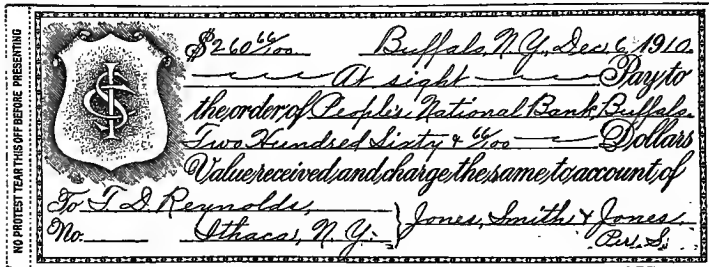 NO PROTEST TEAR THIS OFF BEFORE PRESENTING
$260 66/100 Buffalo, N.Y., Dec. 6, 1910.
At sight Pay to
the order of People's National Bank, Buffalo.
Two Hundred Sixty & 66/100 Dollars
Value received and charge the same to account of
To T. D. Reynolds, Jones, Smith & Jones.
No. Ithaca, N. Y. Per. S.